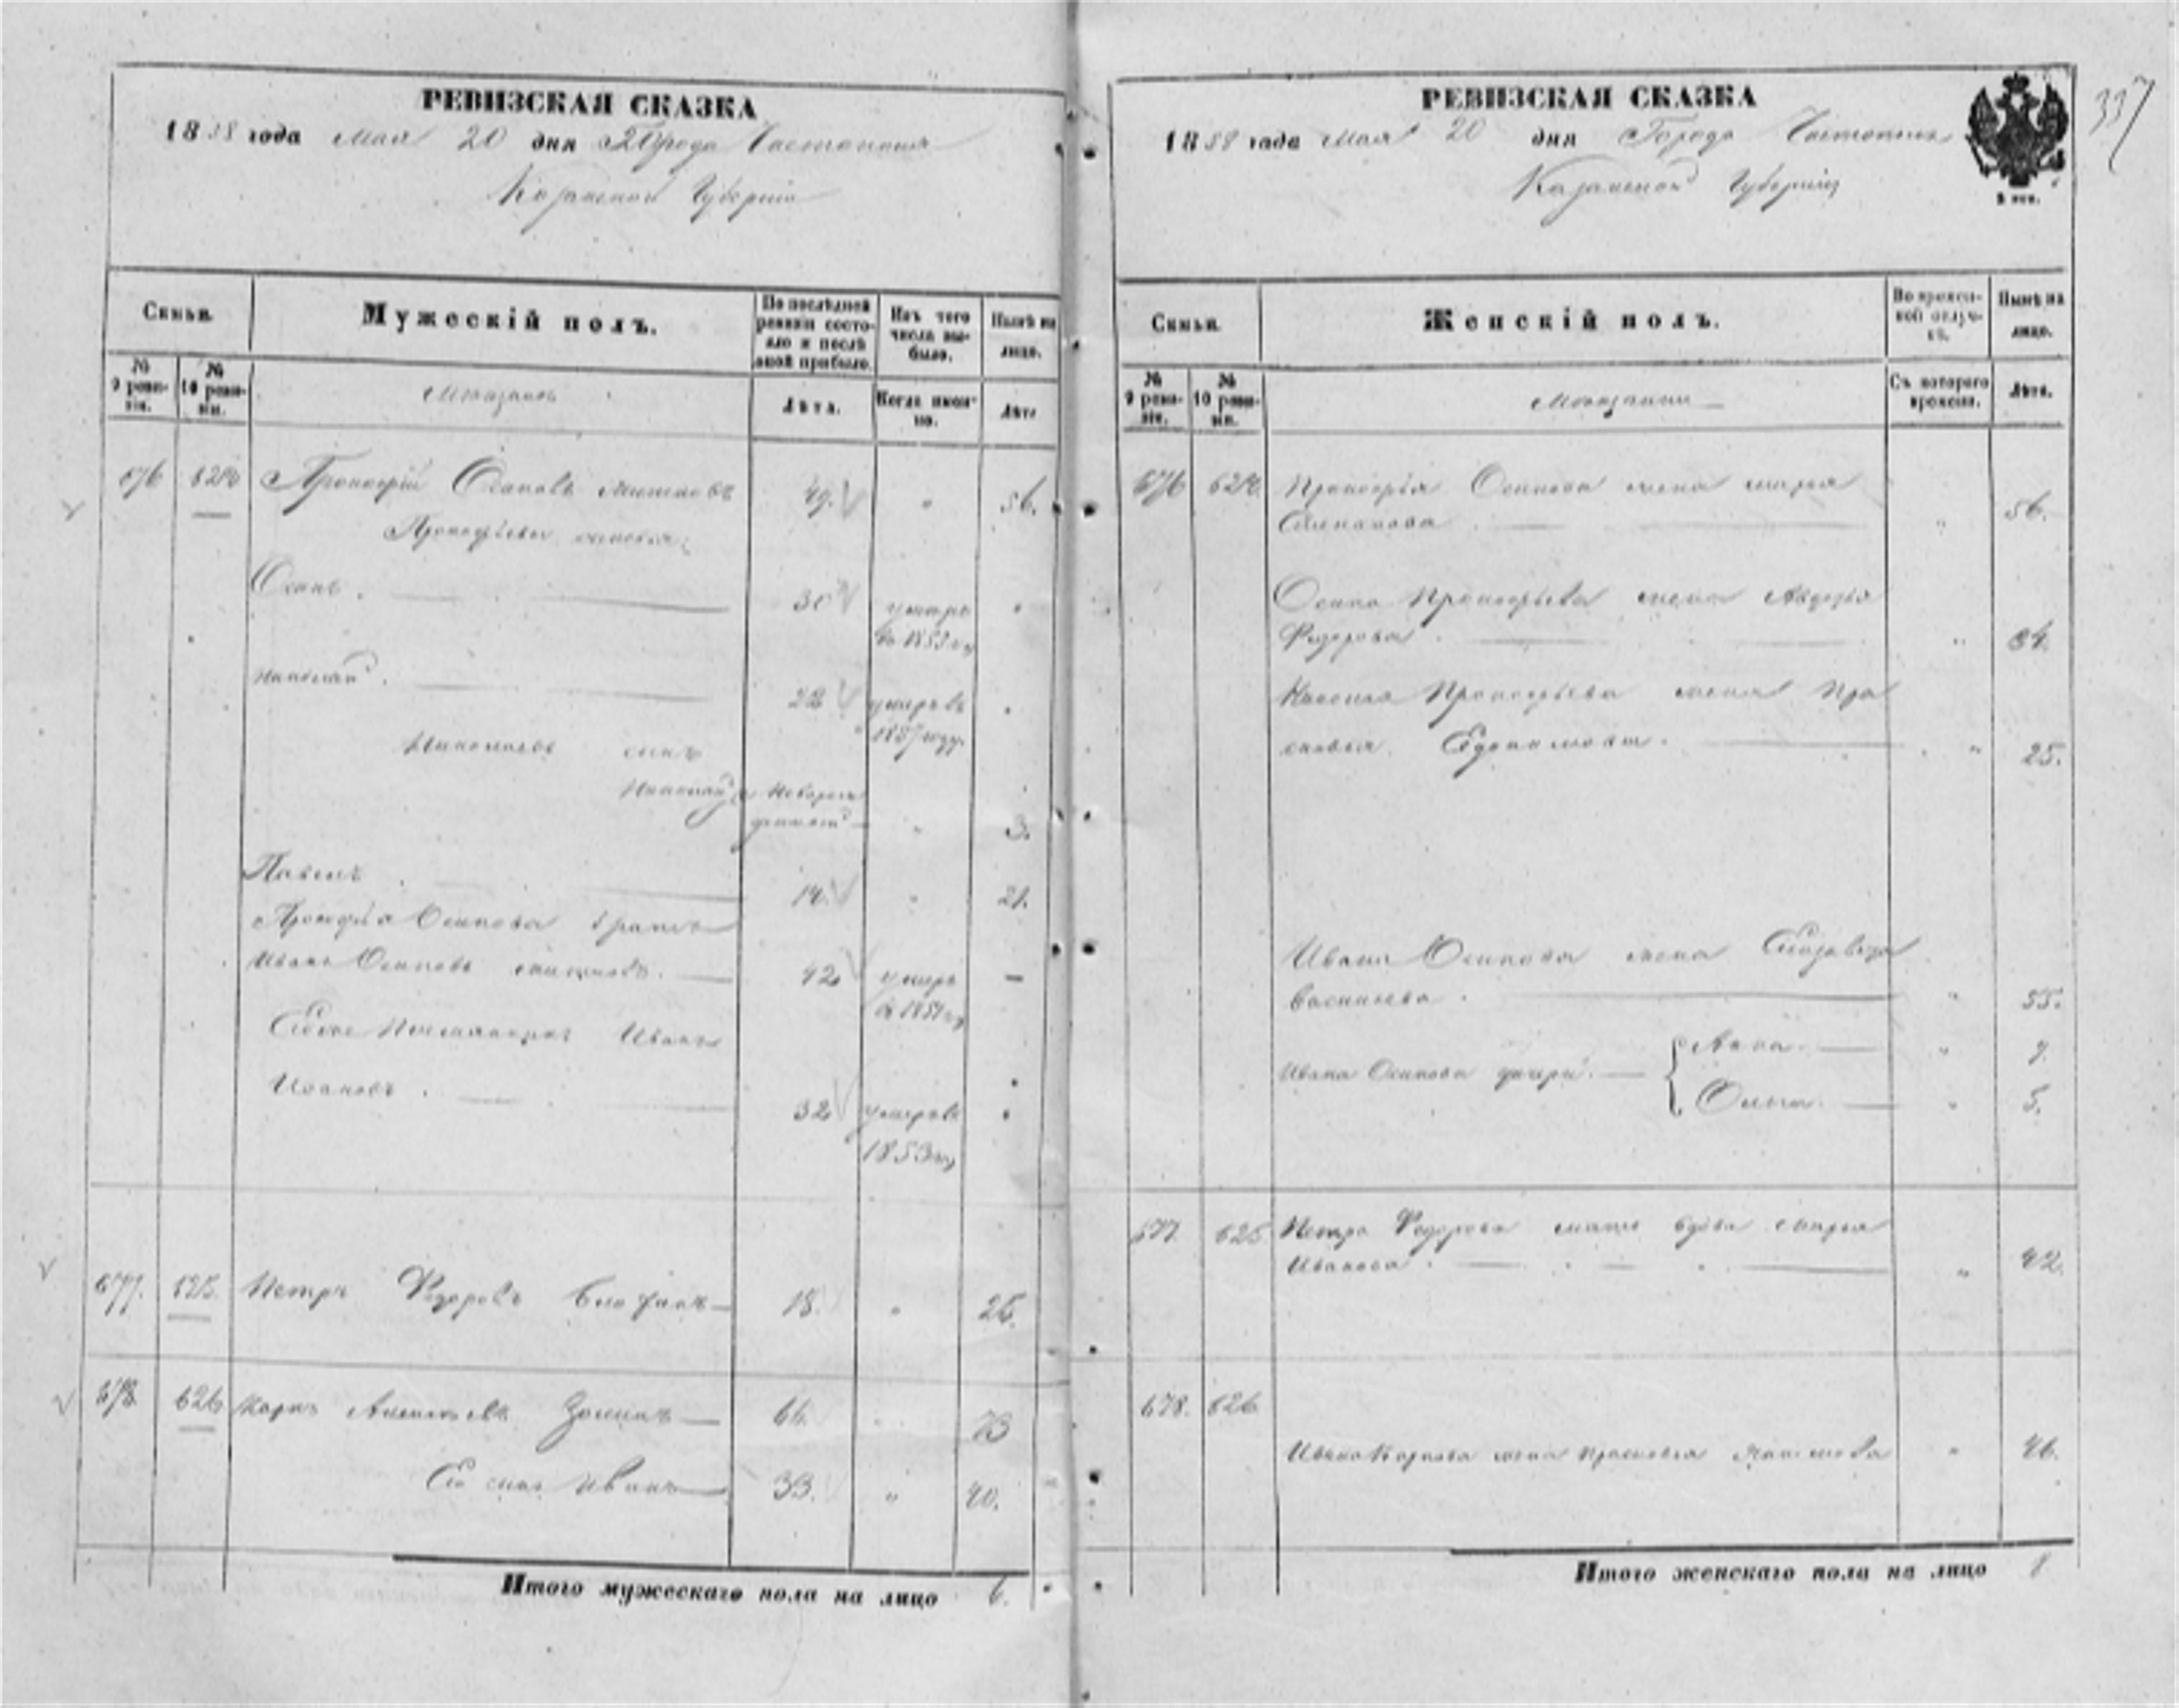 РЕВИЗСКАЯ СКАЗКА
1858 года Мая 20 дня Города Чистополя
Казанской Губернии
Семьи.
Мужескій полъ.
По послѣдней ревизіи состояло и послѣ оной прибыло.
Изъ того числа выбыло.
Нынѣ на лицо.
№ 9 ревизіи.
№ 10 ревизіи.
Мѣщане
Лѣта.
Когда именно.
Лѣта
676 624 Прокофій Осиповъ 49. " 56.
Прокофьевы сыновья:
Осипъ. 30 умеръ
въ 1853 году
Николай. 22 умеръ въ
1857 году.
Николаевъ сынъ
Николай Новорож
денный " 3.
Павелъ 14. " 21.
Прокофья Осипова братъ
Иванъ Осиповъ 42 умеръ —
въ
Иванъ
Ивановъ. 32 умеръ въ
1853 году
677. 625. Петръ Федоровъ 18. " 25.
678 626 Карпъ 66. 73
Его сынъ Иванъ 33. " 40.
Итого мужескаго пола на лицо 6.
РЕВИЗСКАЯ СКАЗКА
337
1858 года Мая 20 дня Города Чистополя
Казанской Губерніи
Семьи.
Женскій полъ.
Во временной отлучкѣ.
Нынѣ на лицо.
№ 9 ревизіи.
№ 10 ревизіи.
Мѣщанки
Съ которого времени.
Лѣта.
676 624. Прокофья Осипова жена Марья
Степанова " 56.
Осипа Прокофьева жена Авдотья
Федорова. " 34.
Николая Прокофьева жена Пра
сковья. " 25.
Ивана Осипова жена Елизавета
Васильева. " 55.
Ивана Осипова дочери. Анна. " 7.
" 5.
677. 625 Петра Федорова мать вдова Марья
Иванова. " 42.
678. 626
Ивана Карпова жена Прасковья " 46.
Итого женскаго пола на лицо 8